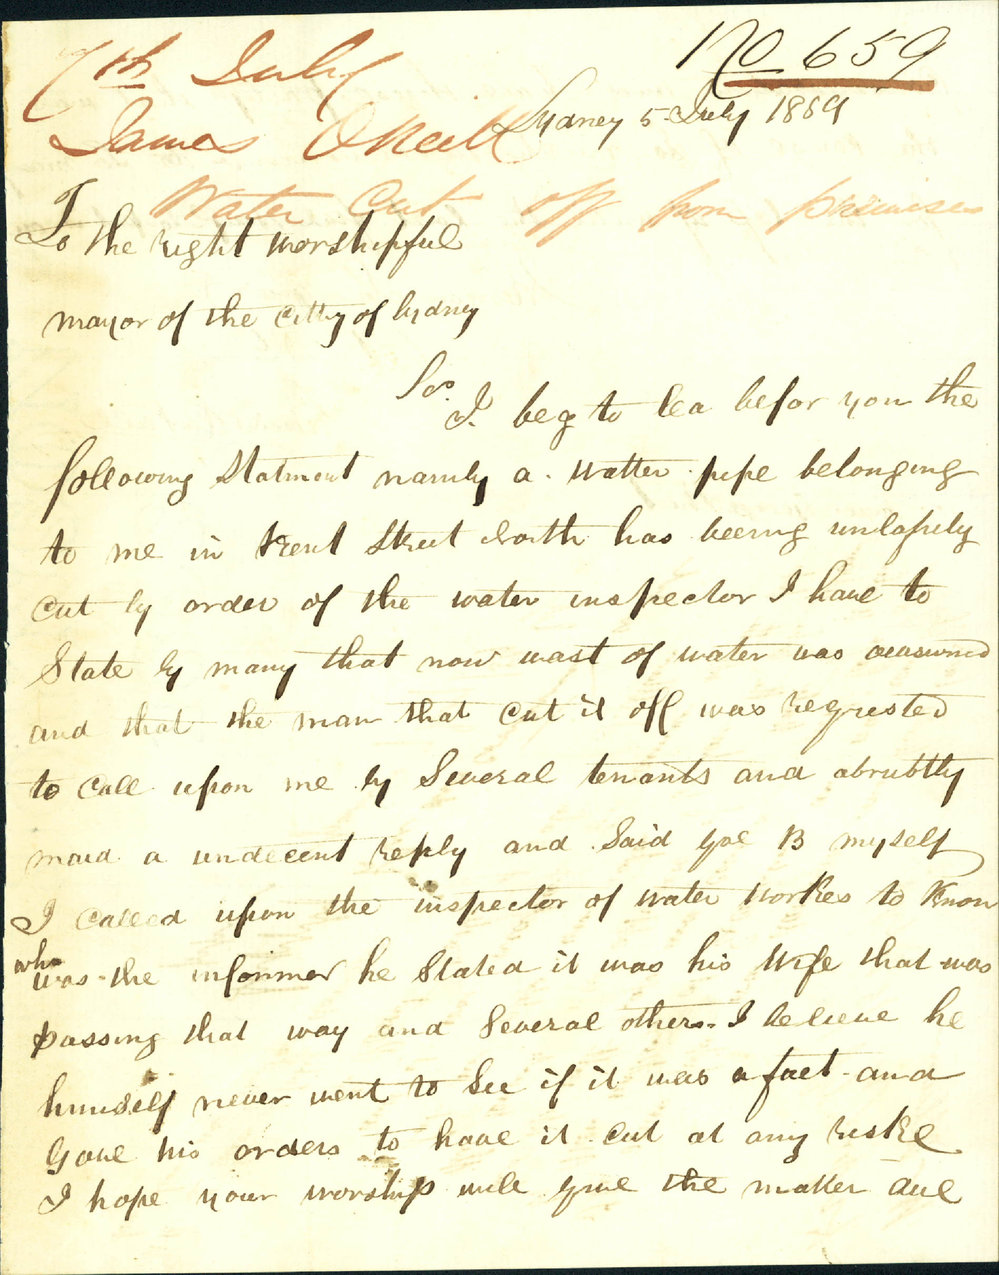 No 659
7th July
Sydney 5 July 1869
James O Neill
Water Cut off from premises
To the right worshipful
mayor of the citty of Sydney
Sir
I beg to lea befor you the
following Statment namly a watter pipe belonging
to me in Kent Street North has beeing unlafuly
cut by order of the water inspector I have to
State by many that now wast of water was
and that the man that cut it off was requested
to Call upon me by Several tenants and abrubtly
maid a undecent reply and Said goe B myself
I called upon the inspector of water workes to Know
who was the informer he Stated it was his Wife that was
passing that way and Several others. I believe he
himself never went to See if it was a fact and
Gave his orders to have it cut at any riske
I hope your worship will give the matter